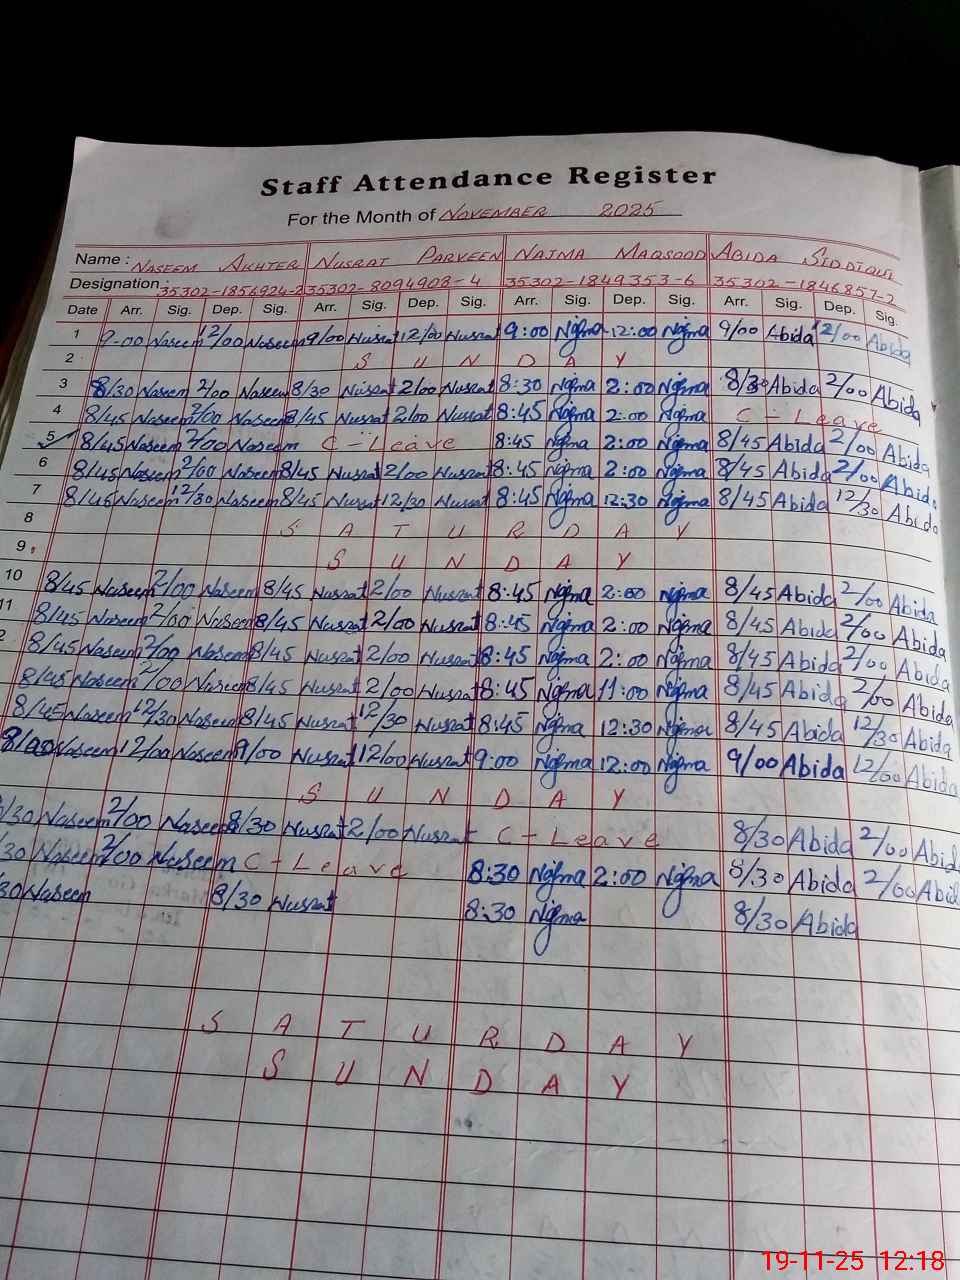 Staff Attendance Register
For the Month of NOVEMBER 2025
Name : NASEEM AKHTER NUSRAT PARVEEN NAJMA MAQSOOD ABIDA SIDDIQUI
Designation : 35302-1856924-2 35302-8094908-4 35302-1849353-6 35302-1846857-2
Date Arr. Sig. Dep. Sig. Arr. Sig. Dep. Sig. Arr. Sig. Dep. Sig. Arr. Sig. Dep. Sig.
1 9-00 Naseem 12/00 Naseem 9/00 Nusrat 12/00 Nusrat 9:00 Najma 12:00 Najma 9/00 Abida 12/00 Abida
2 S U N D A Y
3 8/30 Naseem 2/00 Naseem 8/30 Nusrat 2/00 Nusrat 8:30 Najma 2:00 Najma 8/30 Abida 2/00 Abida
4 8/45 Naseem 2/00 Naseem 8/45 Nusrat 2/00 Nusrat 8:45 Najma 2:00 Najma C - Leave
5 8/45 Naseem 2/00 Naseem C - Leave 8:45 Najma 2:00 Najma 8/45 Abida 2/00 Abida
6 8/45 Naseem 2/00 Naseem 8/45 Nusrat 2/00 Nusrat 8:45 Najma 2:00 Najma 8/45 Abida 2/00 Abida
7 8/45 Naseem 12/30 Naseem 8/45 Nusrat 12/30 Nusrat 8:45 Najma 12:30 Najma 8/45 Abida 12/30 Abida
8 S A T U R D A Y
9 S U N D A Y
10 8/45 Naseem 2/00 Naseem 8/45 Nusrat 2/00 Nusrat 8:45 Najma 2:00 Najma 8/45 Abida 2/00 Abida
11 8/45 Naseem 2/00 Naseem 8/45 Nusrat 2/00 Nusrat 8:45 Najma 2:00 Najma 8/45 Abida 2/00 Abida
2 8/45 Naseem 2/00 Naseem 8/45 Nusrat 2/00 Nusrat 8:45 Najma 2:00 Najma 8/45 Abida 2/00 Abida
8/45 Naseem 2/00 Naseem 8/45 Nusrat 2/00 Nusrat 8:45 Najma 11:00 Najma 8/45 Abida 2/00 Abida
8/45 Naseem 12/30 Naseem 8/45 Nusrat 12/30 Nusrat 8:45 Najma 12:30 Najma 8/45 Abida 12/30 Abida
Naseem 12/00 Naseem 9/00 Nusrat 12/00 Nusrat 9:00 Najma 12:00 Najma 9/00 Abida 12/00 Abida
S U N D A Y
/30 Naseem 2/00 Naseem 8/30 Nusrat 2/00 Nusrat C - Leave 8/30 Abida 2/00 Abid
/30 Naseem 2/00 Naseem C - Leave 8:30 Najma 2:00 Najma 8/30 Abida 2/00 Abid
30 Naseem 8/30 Nusrat 8:30 Najma 8/30 Abida
S A T U R D A Y
S U N D A Y
19-11-25 12:18